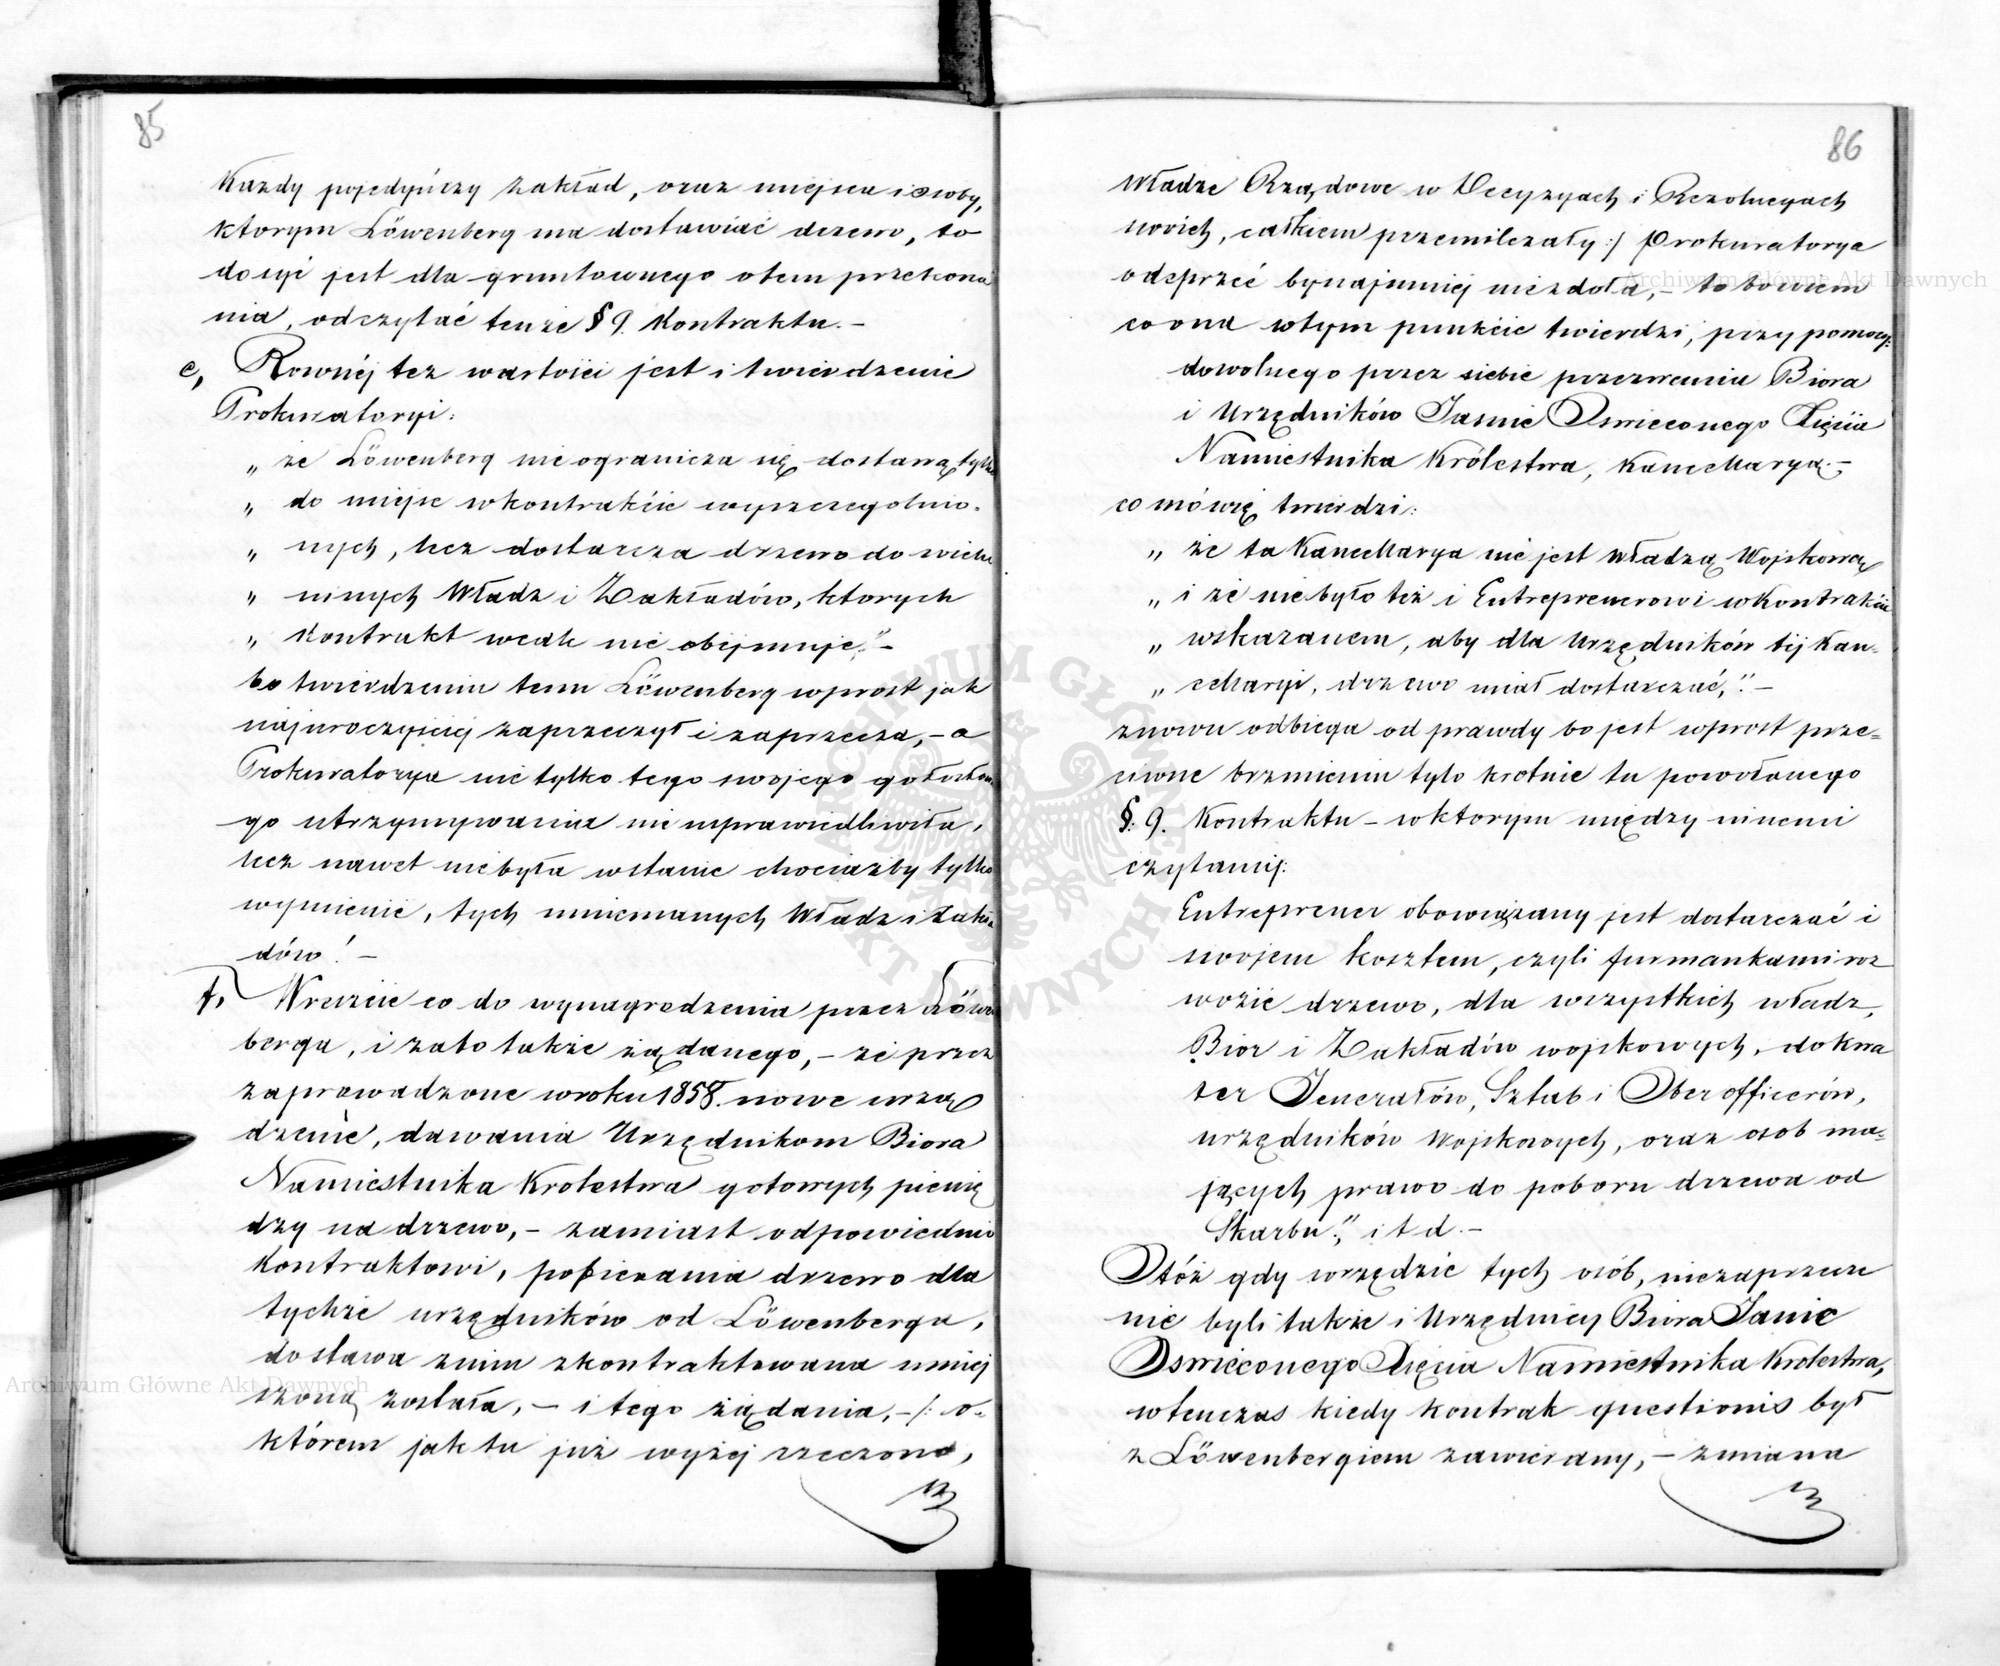 85
każdy pojedyńczy zakład, oraz miejsca i osoby,
ktorym Löwenberg ma dostawiać drzewo, to
dosyć jest dla gruntownego otem przekona
nia, odczytać tenże § 9. Kontraktu. –
e, Rownéj tez wartości jest i twierdzenie
Prokuratoryi:
„ że Löwenberg nie ogranicza się dostawą tylko
„ do miejsc w kontrakcie wyszczegolnio-
„ nych, lecz dostarcza drzewo do wielu
„ innych Władz i Zakładów, ktorych
„ Kontrakt wcale nie obejmuje;" –
bo twierdzeniu temu Löwenberg wprost jak
najuroczyściej zaprzeczył i zaprzecza, – a
Prokuratorya nie tylko tego swojego gołosłow
go utrzymywania nie usprawiedliwiła,
lecz nawet niebyła wstanie chociażby tylko
wymienić, tych mniemanych Władz i Zakła
dów! –
f, Wreszcie co do wynagrodzenia przez Löwen
berga, i zato także żądanego, – że przez
zaprowadzone w roku 1858. nowe urzą
dzenie, dawania Urzędnikom Biora
Namiestnika Krolestwa gotowych pienię
dzy na drzewo, – zamiast odpowiednio
Kontraktowi, pobierania drzewo dla
tychże urzędników od Löwenberga,
dostawa znim zkontraktowana umniej
szoną została, – i tego żądania, – /: o-
którem jak tu już wyżej rzeczono,
86
Władze Rządowe w Decyzyach i Rezolucyach
swoich, całkiem przemilczały :/ Prokuratorya
odeprzeć bynajmniej niezdoła, – to bowiem
co ona wtym punkcie twierdzi, przy pomocy:
dowolnego przez siebie przezwania Biora
i Urzędników Jaśnie Oswieconego Xięcia
Namiestnika Królestwa, Kancellaryą; –
co mówię twierdzi:
„ że ta Kancellarya nie jest Władzą Wojskową
„ i że nie było też i Entreprenerowi w Kontrakcie
„ wskazanem, aby dla Urzędników téj Kan-
„ cellaryi, drzewo miał dostarczać," –
znowu odbiega od prawdy bo jest wprost prze-
ciwne brzmieniu tylo krotnie tu powołanego
§: 9. Kontraktu – w ktorym między innemi
czytamy:
Entreprener obowiązany jest dostarczać i
swojem kosztem, czyli furmankami roz
wozić drzewo, dla wszystkich władz,
Bior i Zakładów wojskowych, do kwa
ter Jenerałów, Sztab i Ober officerów,
urzędników Wojskowych, oraz osob ma-
jących prawo do poboru drzewa od
Skarbu", i t d. –
Otóż gdy w rzędzie tych osób, niezaprzecze
nie byli także i Urzędnicy Biora Janie
Oswieconego Xięcia Namiestnika Krolestwa,
wtenczas kiedy kontrak questionis był
z Löwenbergiem zawierany, – zmiana
Archiwum Główne Akt Dawnych
Archiwum Główne Akt Dawnych
ARCHIWUM GŁÓWNE AKT DAWNYCH